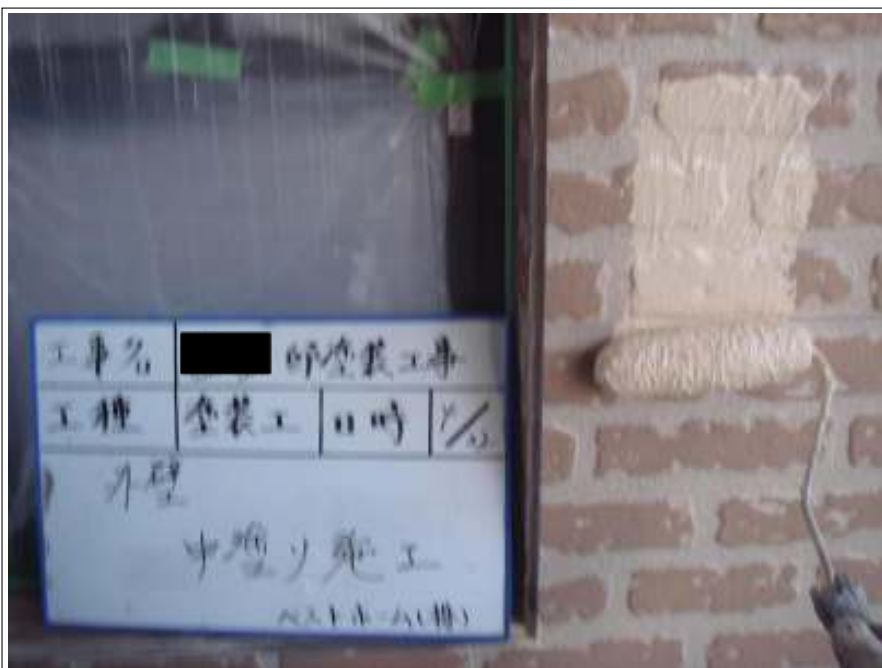 工事名 邸塗装工事
工種 塗装工 日時
外壁
中塗り施工
ベストホーム(株)